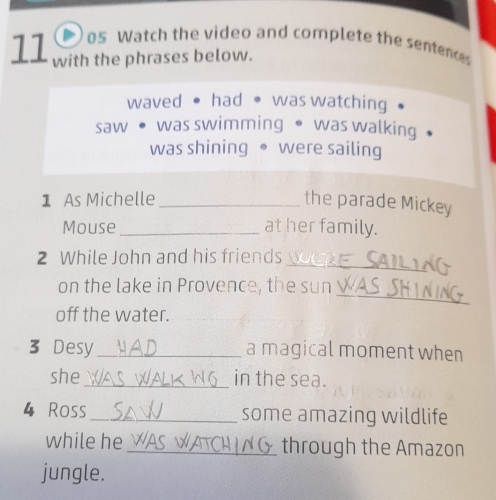 11 05 Watch the video and complete the sentences
with the phrases below.
waved • had • was watching •
saw • was swimming • was walking •
was shining • were sailing
1 As Michelle ______ the parade Mickey
Mouse ______ at her family.
2 While John and his friends WERE SAILING
on the lake in Provence, the sun WAS SHINING
off the water.
3 Desy HAD a magical moment when
she WAS WALK NG in the sea.
4 Ross SAW some amazing wildlife
while he WAS WATCHING through the Amazon
jungle.